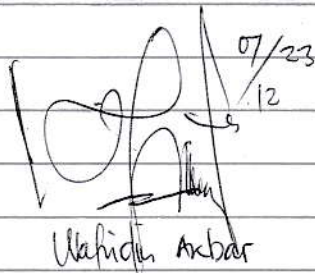 07/23
12
Wahidin Akbar